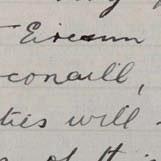 Eireann
conaill,
ties will
of th